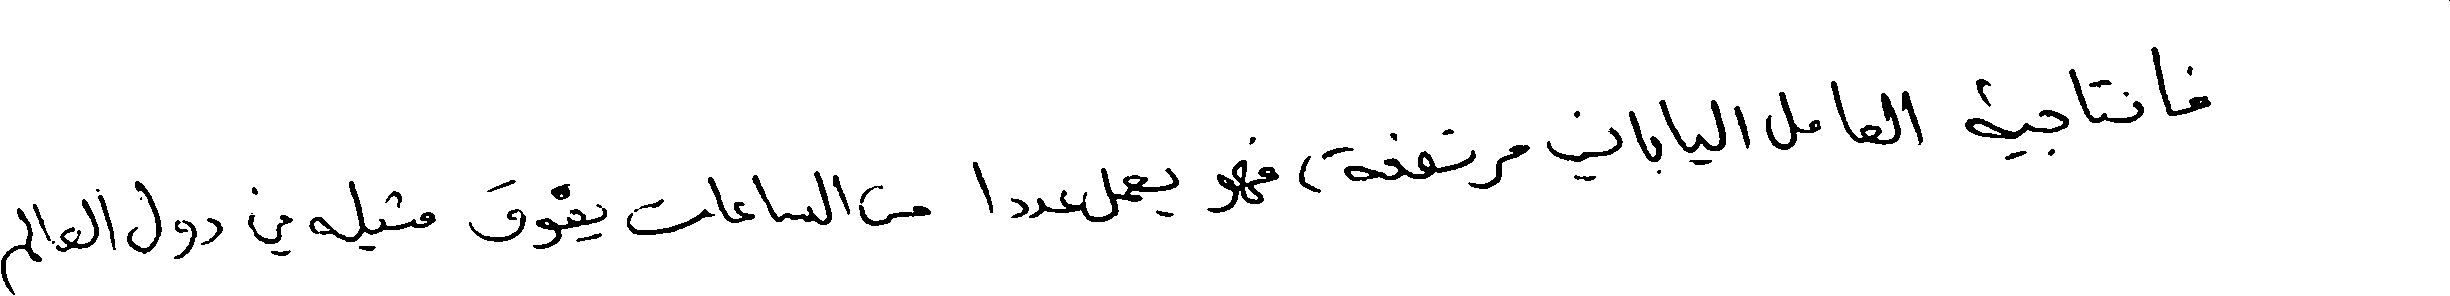 فانتاجية العامل الياباني مرتفعة، فهو يعمل عددا من الساعات يفوق مثيله في دول العالم